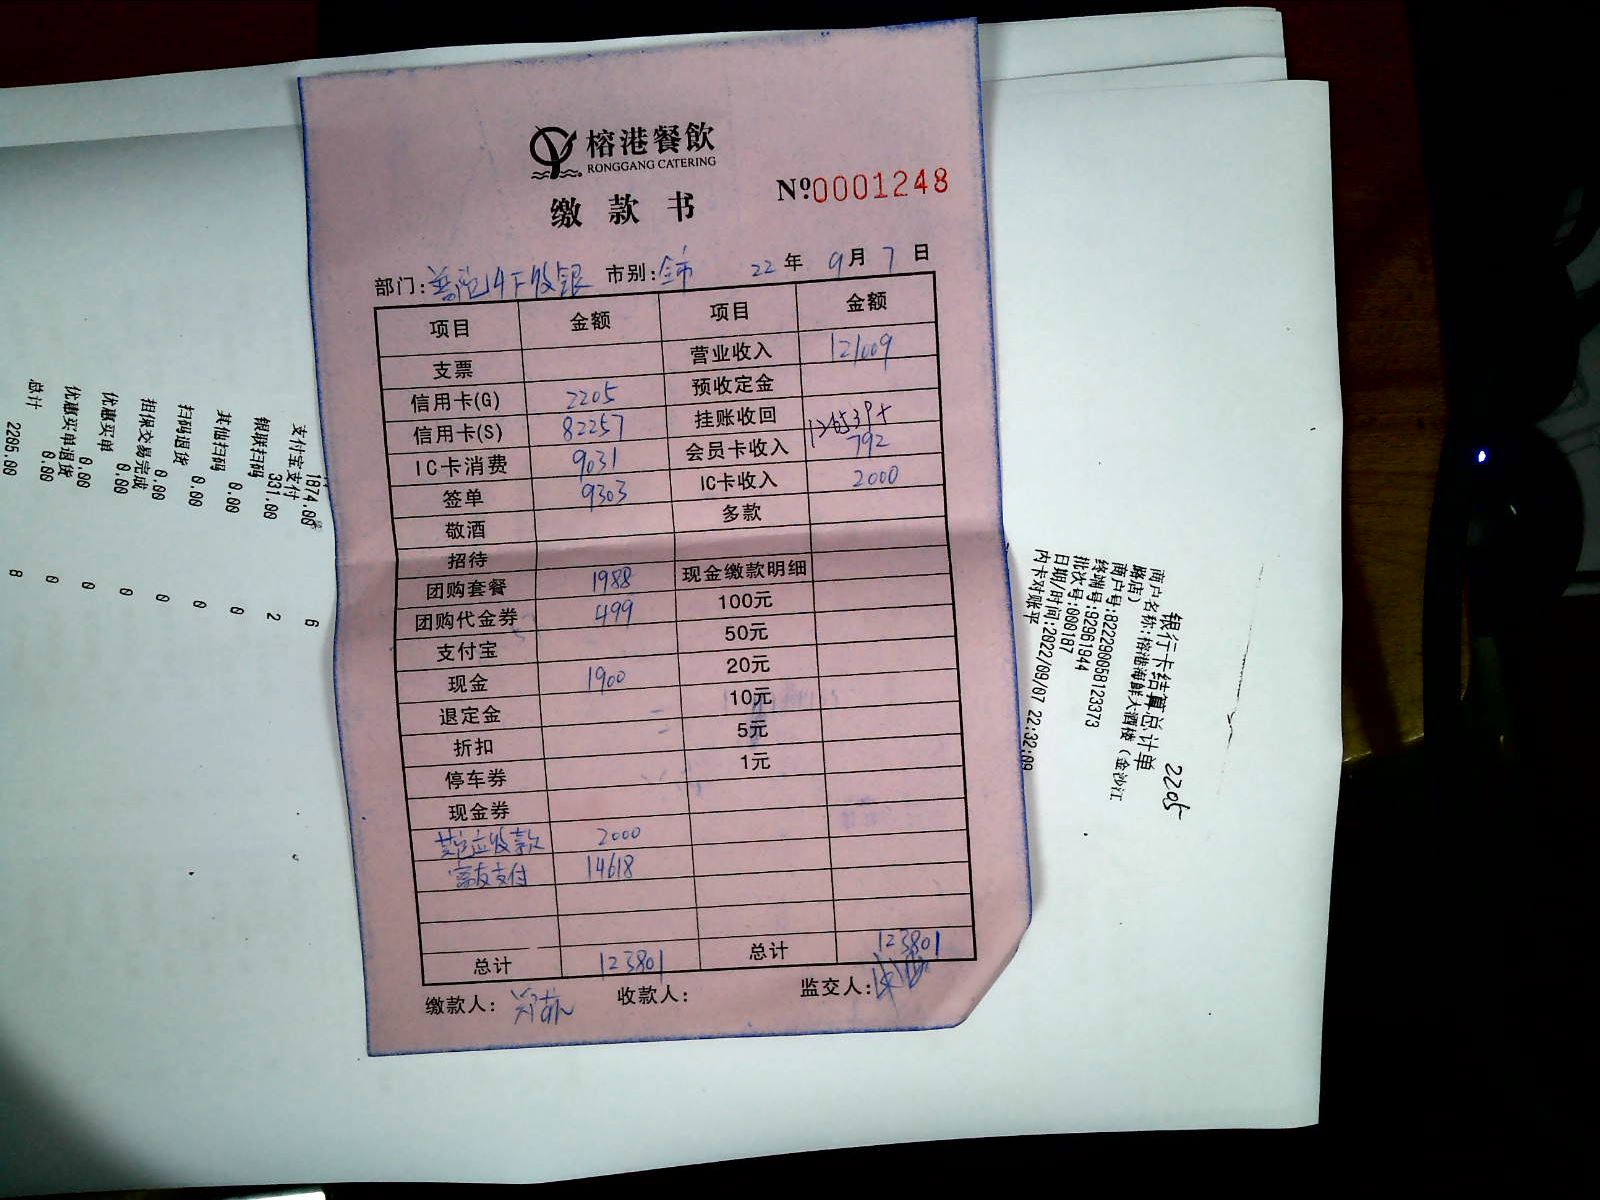 榕港餐飲
RONGGANG CATERING
缴款书
Nº0001248
部门: 收银 市别:全市 22年 9月 7日
项目 金额 项目 金额
支票 营业收入 121009
信用卡(G) 2205 预收定金
信用卡(S) 82257 挂账收回
IC卡消费 9031 会员卡收入 792
签单 9303 IC卡收入 2000
敬酒 多款
招待
团购套餐 1988 现金缴款明细
团购代金券 499 100元
支付宝 50元
现金 1900 20元
退定金 10元
折扣 5元
停车券 1元
现金券
其它应收款 2000
富友支付 14618
总计 123801 总计 123801
缴款人: 收款人: 监交人:
2205
银行卡结算总计单
商户名称:榕港海鲜大酒楼(金沙江
路店)
商户号:822290058123373
终端号:92961944
批次号:000187
日期/时间:2022/09/07 22:32:09
内卡对账平
1874.00 6
支付宝支付
331.00 2
银联扫码
0.00 0
其他扫码
0.00 0
扫码退货
0.00 0
担保交易完成
0.00 0
优惠买单
0.00 0
优惠买单退货
0.00 0
总计
2205.00 8